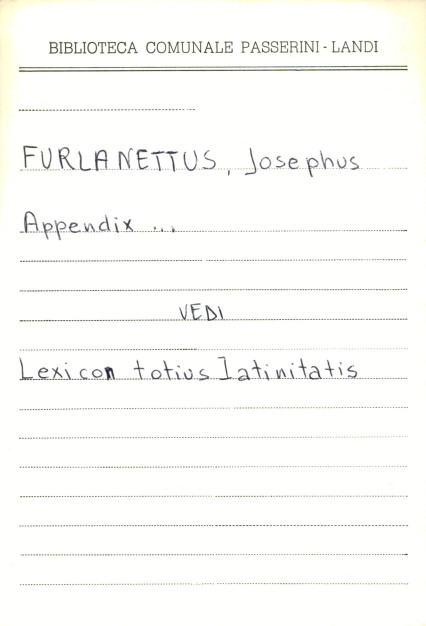 BIBLIOTECA COMUNALE PASSERINI - LANDI
FURLANETTUS, Josephus
Appendix ...
VEDI
Lexicon totius latinitatis